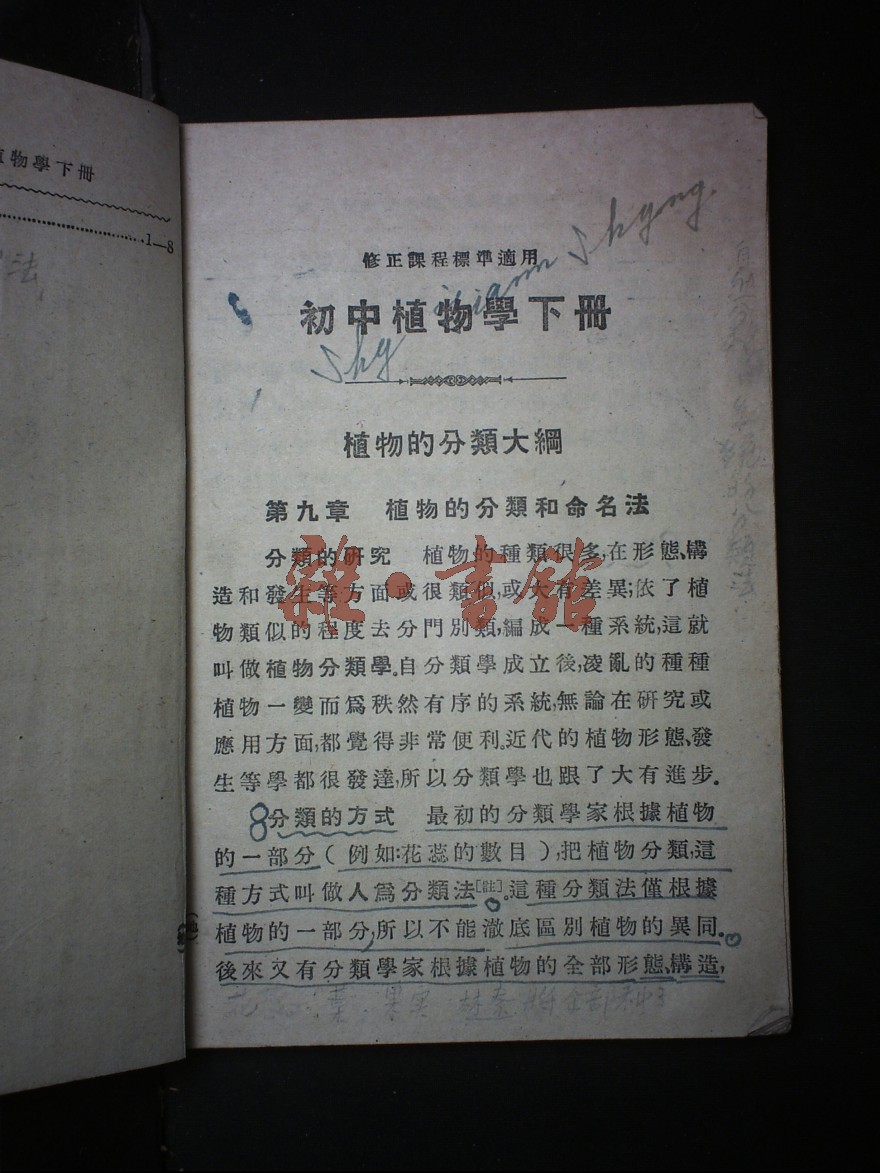 物學下冊
1—8
法
修正課程標準適用
初中植物學下冊
植物的分類大綱
第九章 植物的分類和命名法
分類的研究 植物的種類很多,在形態、構
造和發生等方面或很類似,或大有差異;依了植
物類似的程度去分門別類,編成一種系統,這就
叫做植物分類學。自分類學成立後,凌亂的種種
植物一變而爲秩然有序的系統,無論在研究或
應用方面,都覺得非常便利。近代的植物形態、發
生等學都很發達,所以分類學也跟了大有進步。
8分類的方式 最初的分類學家根據植物
的一部分(例如:花蕊的數目),把植物分類,這
種方式叫做人爲分類法[註]。這種分類法僅根據
植物的一部分,所以不能澈底區別植物的異同。
後來又有分類學家根據植物的全部形態、構造,
雜·書館